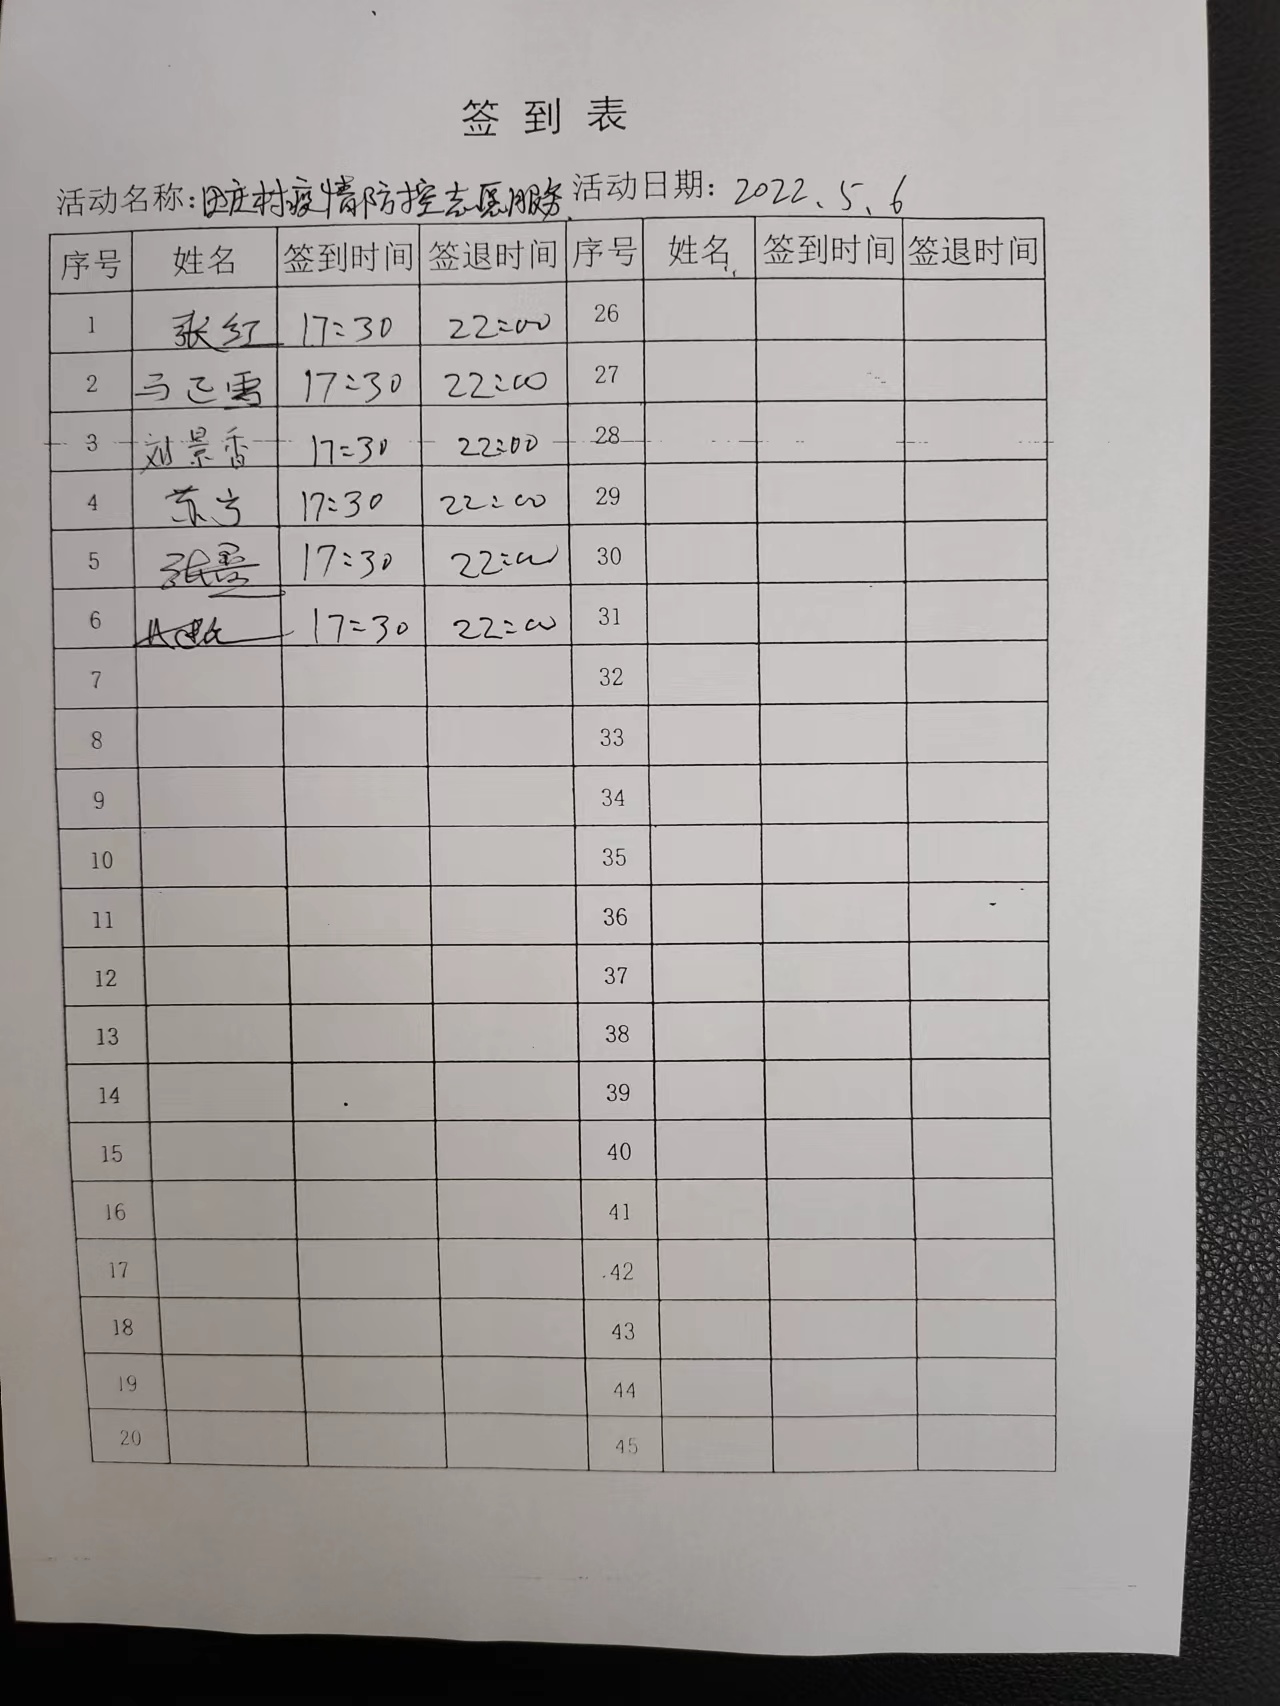 签到表
活动名称:田庄村疫情防控志愿服务 活动日期: 2022.5.6
序号 姓名 签到时间 签退时间 序号 姓名 签到时间 签退时间
1 张红 17:30 22:00 26
2 马 雪 17:30 22:00 27
3 刘景香 17:30 22:00 28
4 苏宁 17:30 22:00 29
5 张曼 17:30 22:00 30
6 17:30 22:00 31
7 32
8 33
9 34
10 35
11 36
12 37
13 38
14 39
15 40
16 41
17 42
18 43
19 44
20 45